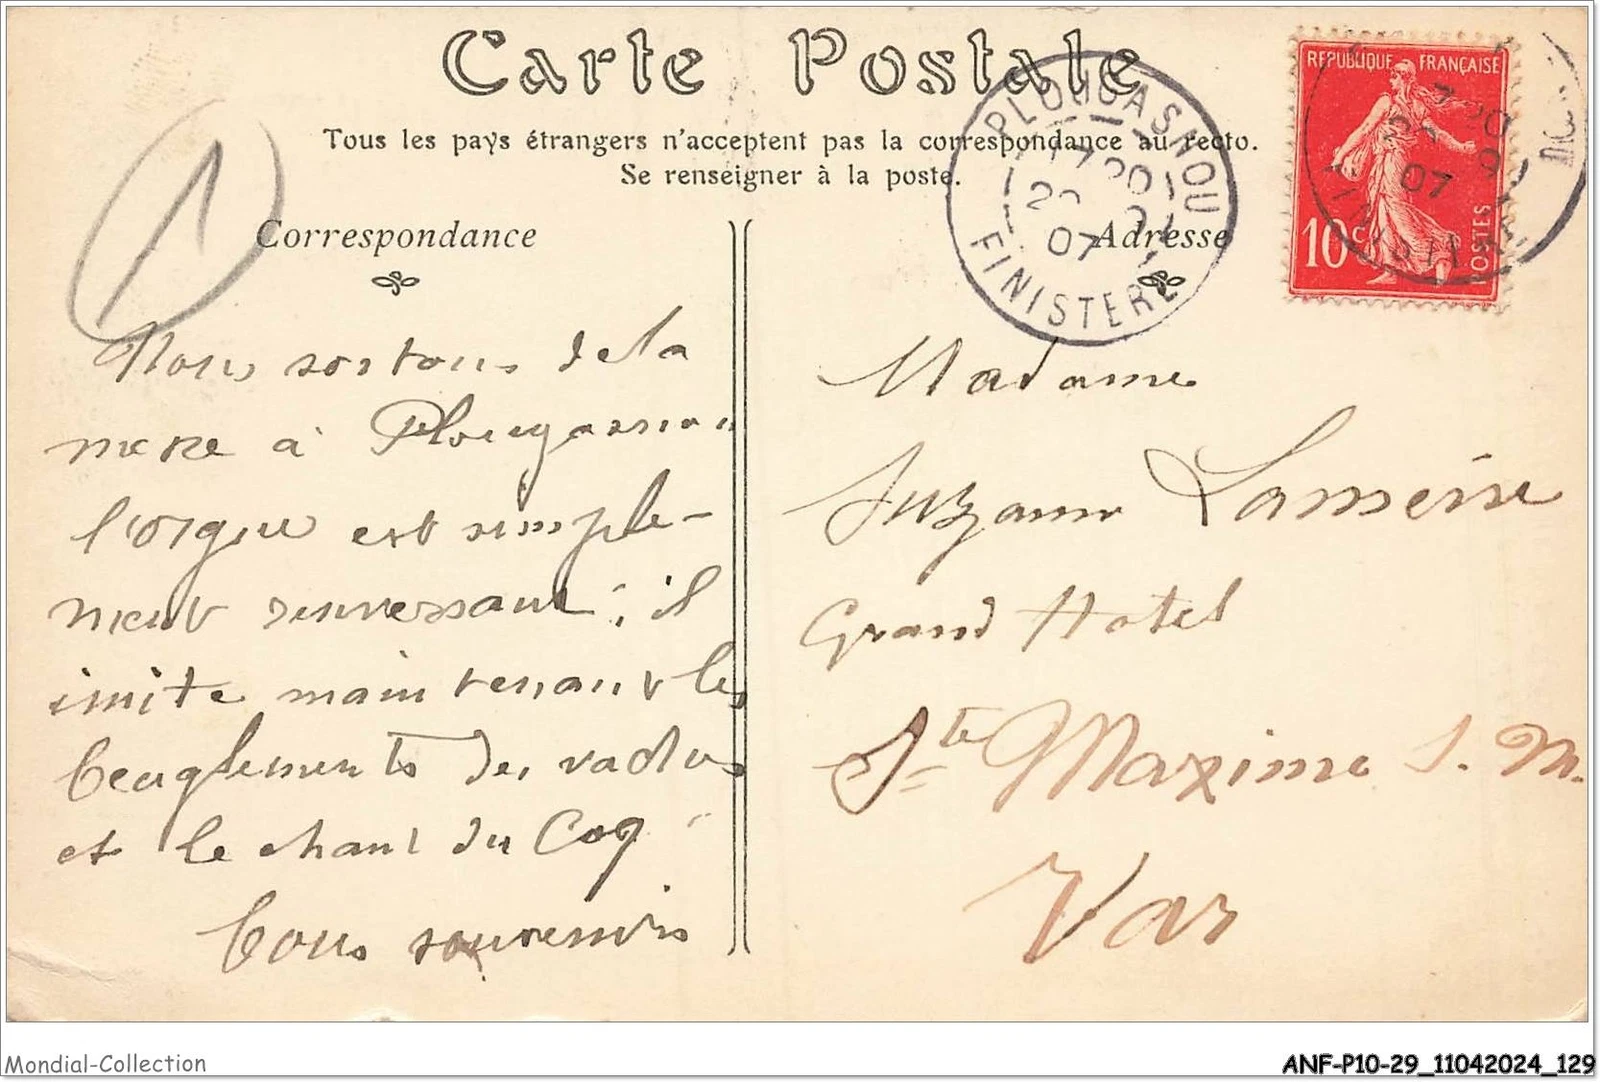 Carte Postale
Tous les pays étrangers n'acceptent pas la correspondance au recto.
Se renseigner à la poste.
Correspondance
Adresse
REPUBLIQUE FRANÇAISE
10c
POSTES
PLOUGASNOU
17 20
07
FINISTERE
07
1
Nous sortons de la
mere à Plougasnou
l'orgue est simple-
ment renversant; il
imite maintenant les
beuglements des vaches
et le chant du Coq.
Bons souvenirs
Madame
Suzanne
Grand Hotel
Ste Maxime s. M.
Var
Mondial-Collection
ANF-P10-29_11042024_129